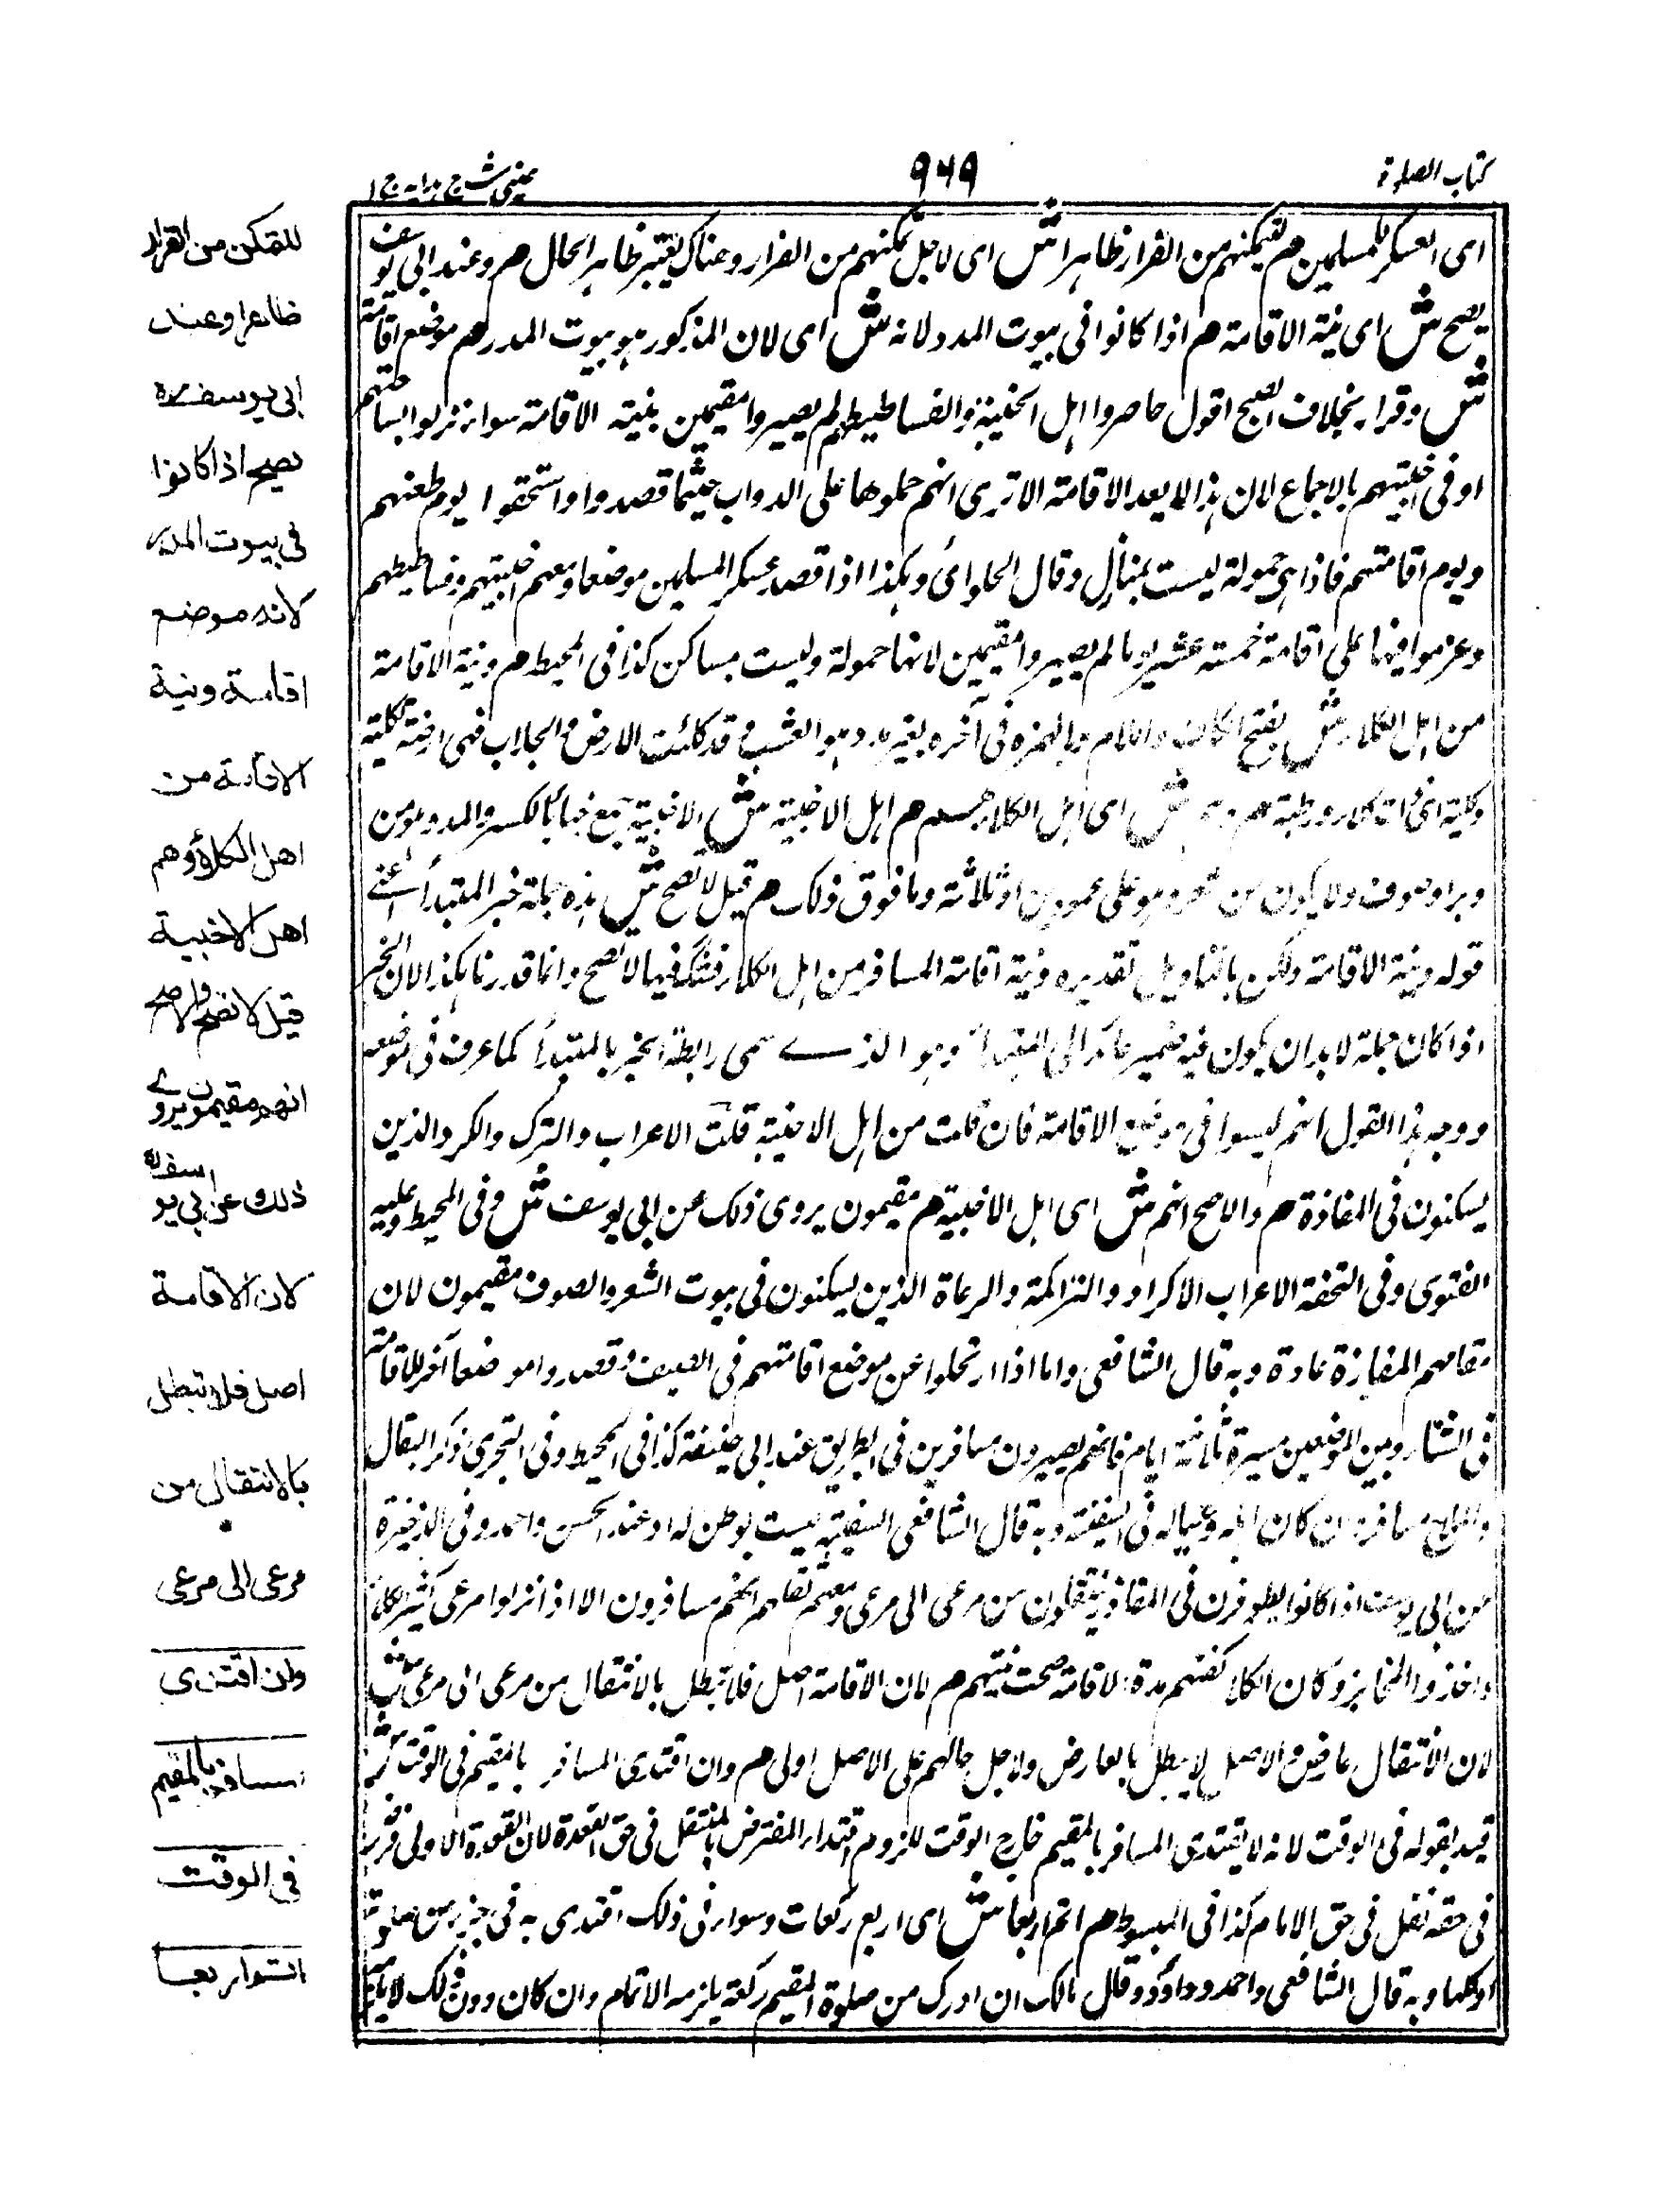 كتاب الصلوة
٩٦٩
عيني شرح هدايه ج ١
اى العسكر للمسلمين هم لتمكنهم من القرار ظاهرا ش اى لاجل تمكنهم من القرار وهناك يعتبر ظاهر الحال هم وعند ابى يوسف
يصح ش اى نية الاقامة هم اذا كانوا فى بيوت المدر لانه ش اى لان المذكور هو بيوت المدر هم موضع اقامة
ش وقرار بخلاف الصحراء اقول حاصروا اهل اخبية والفساطيط لم يصيروا مقيمين بنية الاقامة سواء نزلوا بساحتهم
او فى اخبيتهم بالاجماع لان هذا لا يعد الاقامة الا ترى انهم حملوها على الدواب حيثما قصدوا واستحقوا يوم ظعنهم
ويوم اقامتهم فاذا هى حمولة ليست بمنازل وقال الحلوائى وهكذا اذا قصد عسكر المسلمين موضعا ومعهم اخبيتهم وفساطيطهم
وعزموا فيها على اقامة خمسة عشر يوما لم يصيروا مقيمين لانها حمولة وليست بمساكن كذا فى المحيط هم ونية الاقامة
من اهل الكلاء ش بفتح الكاف واللام وبالهمزة فى آخره بغير مد وهو العشب وقد كلئت الارض فهى ارض مكلئة
وكلية اى ذات كلاء ورطبة هم وهم ش اى اهل الكلاء هم اهل الاخبية ش الاخبية جمع خباء بالكسر والمد وهو من
وبر او صوف ولا يكون من شعر وهو على عمودين او ثلاثة وما فوق ذلك هم قيل لا تصح ش هذه جملة خبر المبتدأ اعنى
قوله ونية الاقامة ولكن بالتاويل تقديره ونية اقامة المسافر من اهل الكلاء لا تصح وانما قدرنا هكذا لان الخبر
اذا كان جملة لا بد ان يكون فيه ضمير عائد الى المبتدأ وهو الذى سمى رابطة الخبر بالمبتدأ كما عرف فى موضعه
ووجه هذا القول انهم ليسوا فى موضع الاقامة فان قلت من اهل الاخبية قلت الاعراب والترك والكرد الذين
يسكنون فى المفازة هم والاصح انهم ش اى اهل الاخبية هم مقيمون يروى ذلك عن ابى يوسف ش وفى المحيط وعليه
الفتوى وفى التحفة الاعراب الاكراد والتراكمة والرعاة الذين يسكنون فى بيوت الشعر والصوف مقيمون لان
مقامهم المفازة عادة وبه قال الشافعى واما اذا ارتحلوا عن موضع اقامتهم فى الصيف وقصدوا موضعا آخر للاقامة
فى الشتاء وبين الموضعين مسيرة ثلاثة ايام فانهم يصيرون مسافرين فى الطريق عند ابى حنيفة كذا فى المحيط وفى التجرى ذكر البقال
والملاح مسافر وان كان اهله وعياله فى السفينة وبه قال الشافعى السفينة ليست بوطن له وعند الحسن واحمد وفى الذخيرة
عن ابى يوسف اذا كانوا يطوفون فى المفازة ينتقلون من مرعى الى مرعى ومعهم ثقلهم انهم مسافرون الا اذا نزلوا مرعى كثير الكلاء
واتخذوا المخابز وكان الكلاء كفتهم مدة الاقامة صحت نيتهم هم لان الاقامة اصل فلا تبطل بالانتقال من مرعى الى مرعى ش
لان الانتقال عارض والاصل لا يبطل بالعارض ولاجل حالهم على الاصل اولى هم وان اقتدى المسافر بالمقيم فى الوقت ش
قيد بقوله فى الوقت لانه لا يقتدى المسافر بالمقيم خارج الوقت للزوم اقتداء المفترض بالمتنفل فى حق القعدة لان القعدة الاولى فرض
فى حقه نفل فى حق الامام كذا فى المبسوط هم اتم اربعا ش اى اربع ركعات وسواء فى ذلك اقتدى به فى جزء من صلوته
او كلها وبه قال الشافعى واحمد وداود وقال مالك ان ادرك من صلوة المقيم ركعة يلزمه الاتمام وان كان دون ذلك لا يلزمه
للتمكن من القرار
ظاهرا وعند
ابى يوسف رح
يصح اذا كانوا
فى بيوت المدر
لانه موضع
اقامة ونية
الاقامة من
اهل الكلاء وهم
اهل الاخبية
قيل لا تصح والاصح
انهم مقيمون يروى
ذلك عن ابى يوسف رح
لان الاقامة
اصل فلا تبطل
بالانتقال من
مرعى الى مرعى
وان اقتدى
المسافر بالمقيم
فى الوقت
اتم اربعا